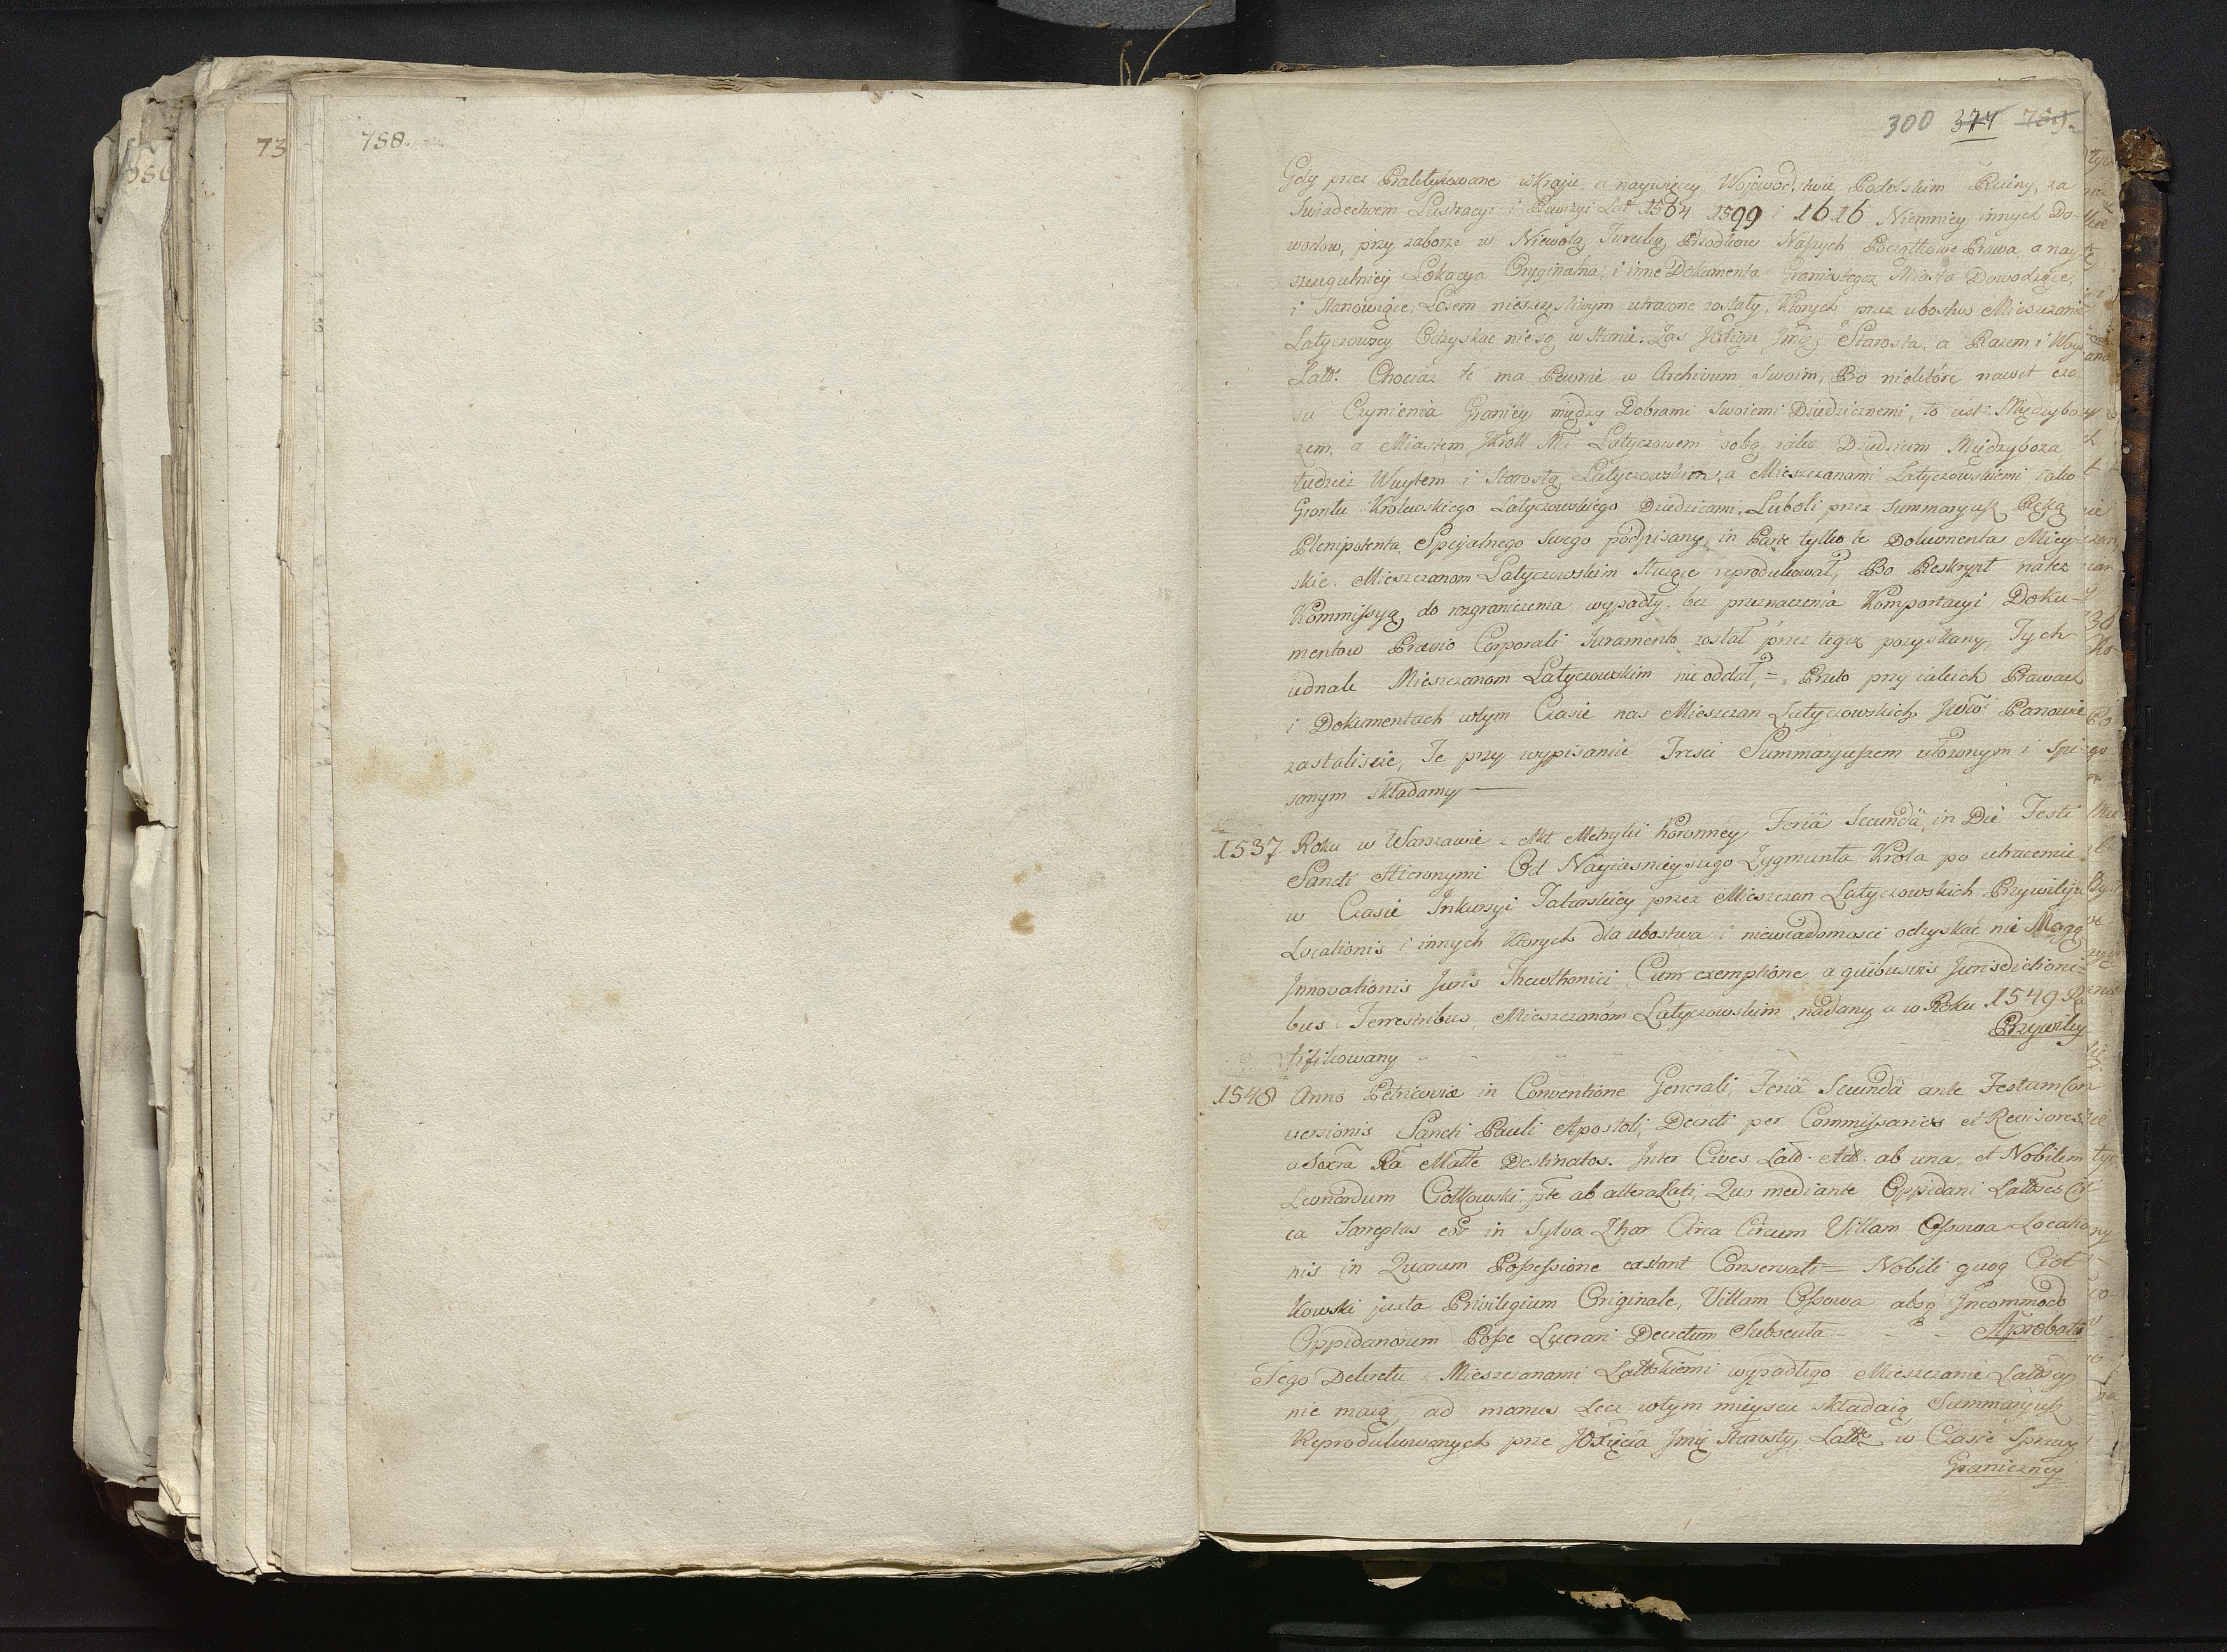 758.
73
300 374 789.
Gdy przez Praktykowane w Kraju, a naywięcey Wojewodztwie Podolskim Ruiny, za
Swiadectwem Lustracyi i Rewizyi Lat 1564 1599 i 1616 Niemniey innych Do-
wodow, przy zaborze w Niewolą Turecką Przodkow Naszych Początkowe Prawa, a nay
szczegulniey Lokacya Oryginalna, i inne Dokumenta Granic tegoż Miasta Dowodzące,
i Stanowiące, Losem nieszczęsliwym utracone zostały, Ktorych przez ubostwo Mieszczanie
Latyczowscy Odzyskac nie są w stanie. Zas JOXiąże Jmć Starosta, a Razem i Woyt
Latt. Chociaz te ma Pewnie w Archivum Swoim, Bo niektóre nawet cza
su Czynienia Granicy między Dobrami Swoiemi Dziedzicznemi, to iest Międzybo
zem, a Miastem JKroll Mci Latyczowem sobą iako Dziedzicem Międzyboza
tudzież Wuytem i Starostą Latyczowskim, a Mieszczanami Latyczowskiemi iako
Grontu Krolewskiego Latyczowskiego Dziedzicami, Luboli przez Summaryusz Ręką
Plenipotenta Specyalnego Swego podpisany, in Parte tylko te Dokumenta Miey-
skie Mieszczanom Latyczowskim Służące reprodukował, Bo Reskrypt na też
Kommissyą do rozgraniczenia wypadły, bez przeznaczenia Komportacyi Doku-
mentow Prævio Corporali Juramento został przez tegoż pozyskany, Tych
iednak Mieszczanom Latyczowskim nie oddał, = Przeto przy iakich Prawach
i Dokumentach w tym Czasie nas Mieszczan Latyczowskich JWW Panowie
zastaliscie, Te przy wypisanie Tresci Summaryuszem ułożonym i spi-
sanym składamy —
1537. Roku w Warszawie z Akt Metryki Koronney Feriâ Secundâ, in Die Festi
Sancti Hieronymi Od Nayiasnieyszego Zygmunta Krola po utraceniu
w Czasie Inkursyi Tatarskiey przez Mieszczan Latyczowskich Przywileju
Locationis i innych Ktorych dla ubostwa i niewiadomosci odzyskać nie Mogą
Innovationis Juris Thewthonici Cum exemptione a quibusvis Jurisdictioni-
bus Terrestribus, Mieszczanom Latyczowskim nadany a w Roku 1549 Ra
tifikowany Przywiley
1548 Anno Petricoviæ in Conventione Generali, Feriâ Secundâ ante Festum Con
versionis Sancti Pauli Apostoli, Decreti per Commissarios et Revisores
a Sacra Ra Matte Destinatos. Inter Cives Latt. Act. ab una, et Nobilem
Leonardum Ciołkowski pte ab altera Lati, Quo mediante Oppidani Lattses Cir
ca in Sylva Zhar Circa Circum Villam Ossowa Locatio
nis in Quarum Possessione extant Conservati = Nobili quoq Cioł
kowski juxta Privilegium Originale, Villam Ossowa absq Incommodo
Oppidanorum Posse Lucrari Decretum Subsecuta - - - Aprobata
Tego Dekretu z Mieszczanami Lattskiemi wypadłego Mieszczanie Lattscy
nie maią ad manus Lecz w tym mieyscu składaią Summaryusz
Reprodukowanych prze JOXięcia Jmć Starosty Lattgo w Czasie Sprawy
Graniczney